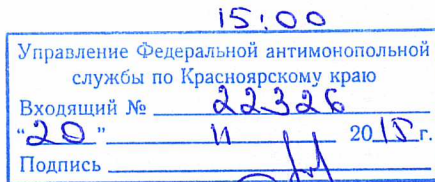 15:00
Управление Федеральной антимонопольной
службы по Красноярскому краю
Входящий № 22326
"20" 11 2015г.
Подпись